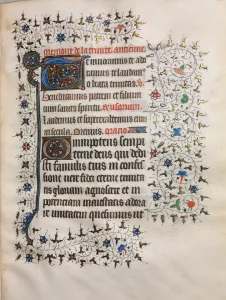 memoire de la trinite. antienne
Te invocamus te ado
ramus te laudamus
o beata trinitas. V.
Benedicamus patrem et filium
cum sancto spiritu.
Laudemus et superexaltemus eum
in secula. Oremus. Oratio
Omnipotens sempi
terne deus qui dedi
sti famulis tuis in confes
sione vere fidei eterne trinita
tis gloriam agnoscere et in
potencia maiestatis adora
re unitatem quesumus ut